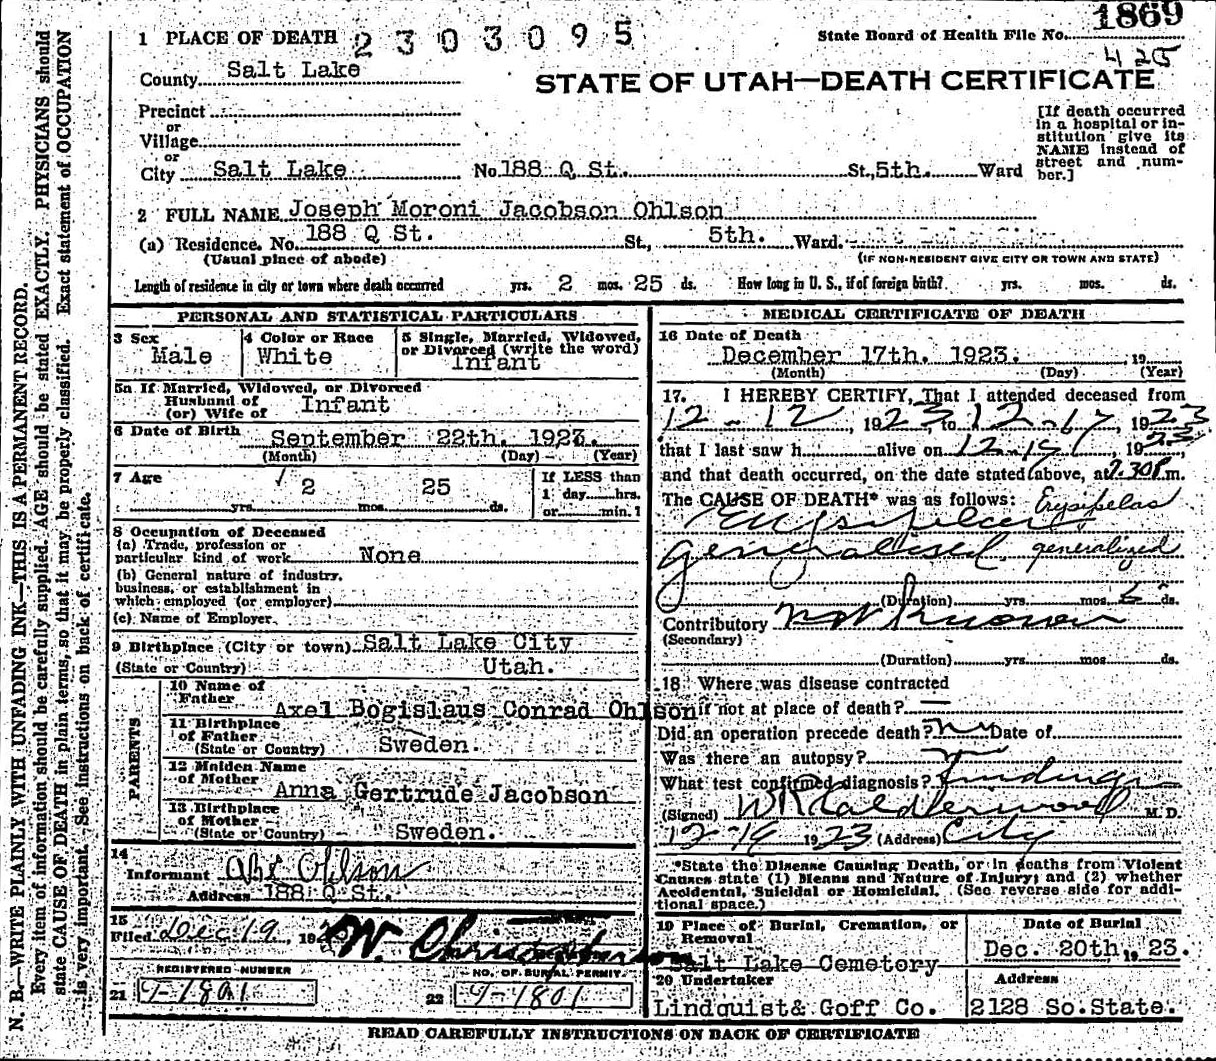 1869
1 PLACE OF DEATH 2303095 State Board of Health File No.
425
County Salt Lake
STATE OF UTAH—DEATH CERTIFICATE
Precinct
or
Village
or
City Salt Lake No. 188 Q St. St., 5th. Ward
[If death occurred
in a hospital or in-
stitution give its
NAME instead of
street and num-
ber.]
2 FULL NAME Joseph Moroni Jacobson Ohlson
(a) Residence. No. 188 Q St. St., 5th. Ward.
(Usual place of abode) (IF NON-RESIDENT GIVE CITY OR TOWN AND STATE)
Length of residence in city or town where death occurred yrs. 2 mos. 25 ds. How long in U. S., if of foreign birth? yrs. mos. ds.
PERSONAL AND STATISTICAL PARTICULARS
3 Sex
Male
4 Color or Race
White
5 Single, Married, Widowed,
or Divorced (write the word)
Infant
5a If Married, Widowed, or Divorced
Husband of
(or) Wife of Infant
6 Date of Birth September 22th. 1923.
(Month) (Day) (Year)
7 Age 2 25
yrs. mos. ds.
If LESS than
1 day hrs.
or min.?
8 Occupation of Deceased
(a) Trade, profession or
particular kind of work None
(b) General nature of industry,
business, or establishment in
which employed (or employer)
(c) Name of Employer
9 Birthplace (City or town) Salt Lake City
(State or Country) Utah.
PARENTS
10 Name of
Father Axel Bogislaus Conrad Ohlson
11 Birthplace
of Father
(State or Country) Sweden.
12 Maiden Name
of Mother Anna Gertrude Jacobson
13 Birthplace
of Mother
(State or Country) Sweden.
14
Informant Abe Ohlson
Address 188 Q St.
15
Filed Dec 19, 192 W. Christopherson
REGISTERED NUMBER
21 9-1801
NO. OF BURIAL PERMIT
22 9-1801
MEDICAL CERTIFICATE OF DEATH
16 Date of Death
December 17th. 1923. 19
(Month) (Day) (Year)
17. I HEREBY CERTIFY, That I attended deceased from
12-12, 1923 to 12-17, 1923
that I last saw h alive on 12-17, 1923,
and that death occurred, on the date stated above, at 7.30 P. m.
The CAUSE OF DEATH* was as follows: Erysipelas
Erysipelas
generalised generalized
(Duration) yrs. mos. 6 ds.
Contributory not known
(Secondary)
(Duration) yrs. mos. ds.
18 Where was disease contracted
if not at place of death? —
Did an operation precede death? no Date of
Was there an autopsy? no
What test confirmed diagnosis? findings
(Signed) W R Calderwood M. D.
12-19 1923 (Address) City
*State the Disease Causing Death, or in deaths from Violent
Causes state (1) Means and Nature of Injury; and (2) whether
Accidental, Suicidal or Homicidal. (See reverse side for addi-
tional space.)
19 Place of Burial, Cremation, or
Removal
Salt Lake Cemetery
Date of Burial
Dec. 20th, 19 23.
20 Undertaker
Lindquist& Goff Co.
Address
2128 So.State.
READ CAREFULLY INSTRUCTIONS ON BACK OF CERTIFICATE
N. B.—WRITE PLAINLY WITH UNFADING INK—THIS IS A PERMANENT RECORD.
Every item of information should be carefully supplied. AGE should be stated EXACTLY. PHYSICIANS should
state CAUSE OF DEATH in plain terms, so that it may be properly classified. Exact statement of OCCUPATION
is very important. See instructions on back of certificate.